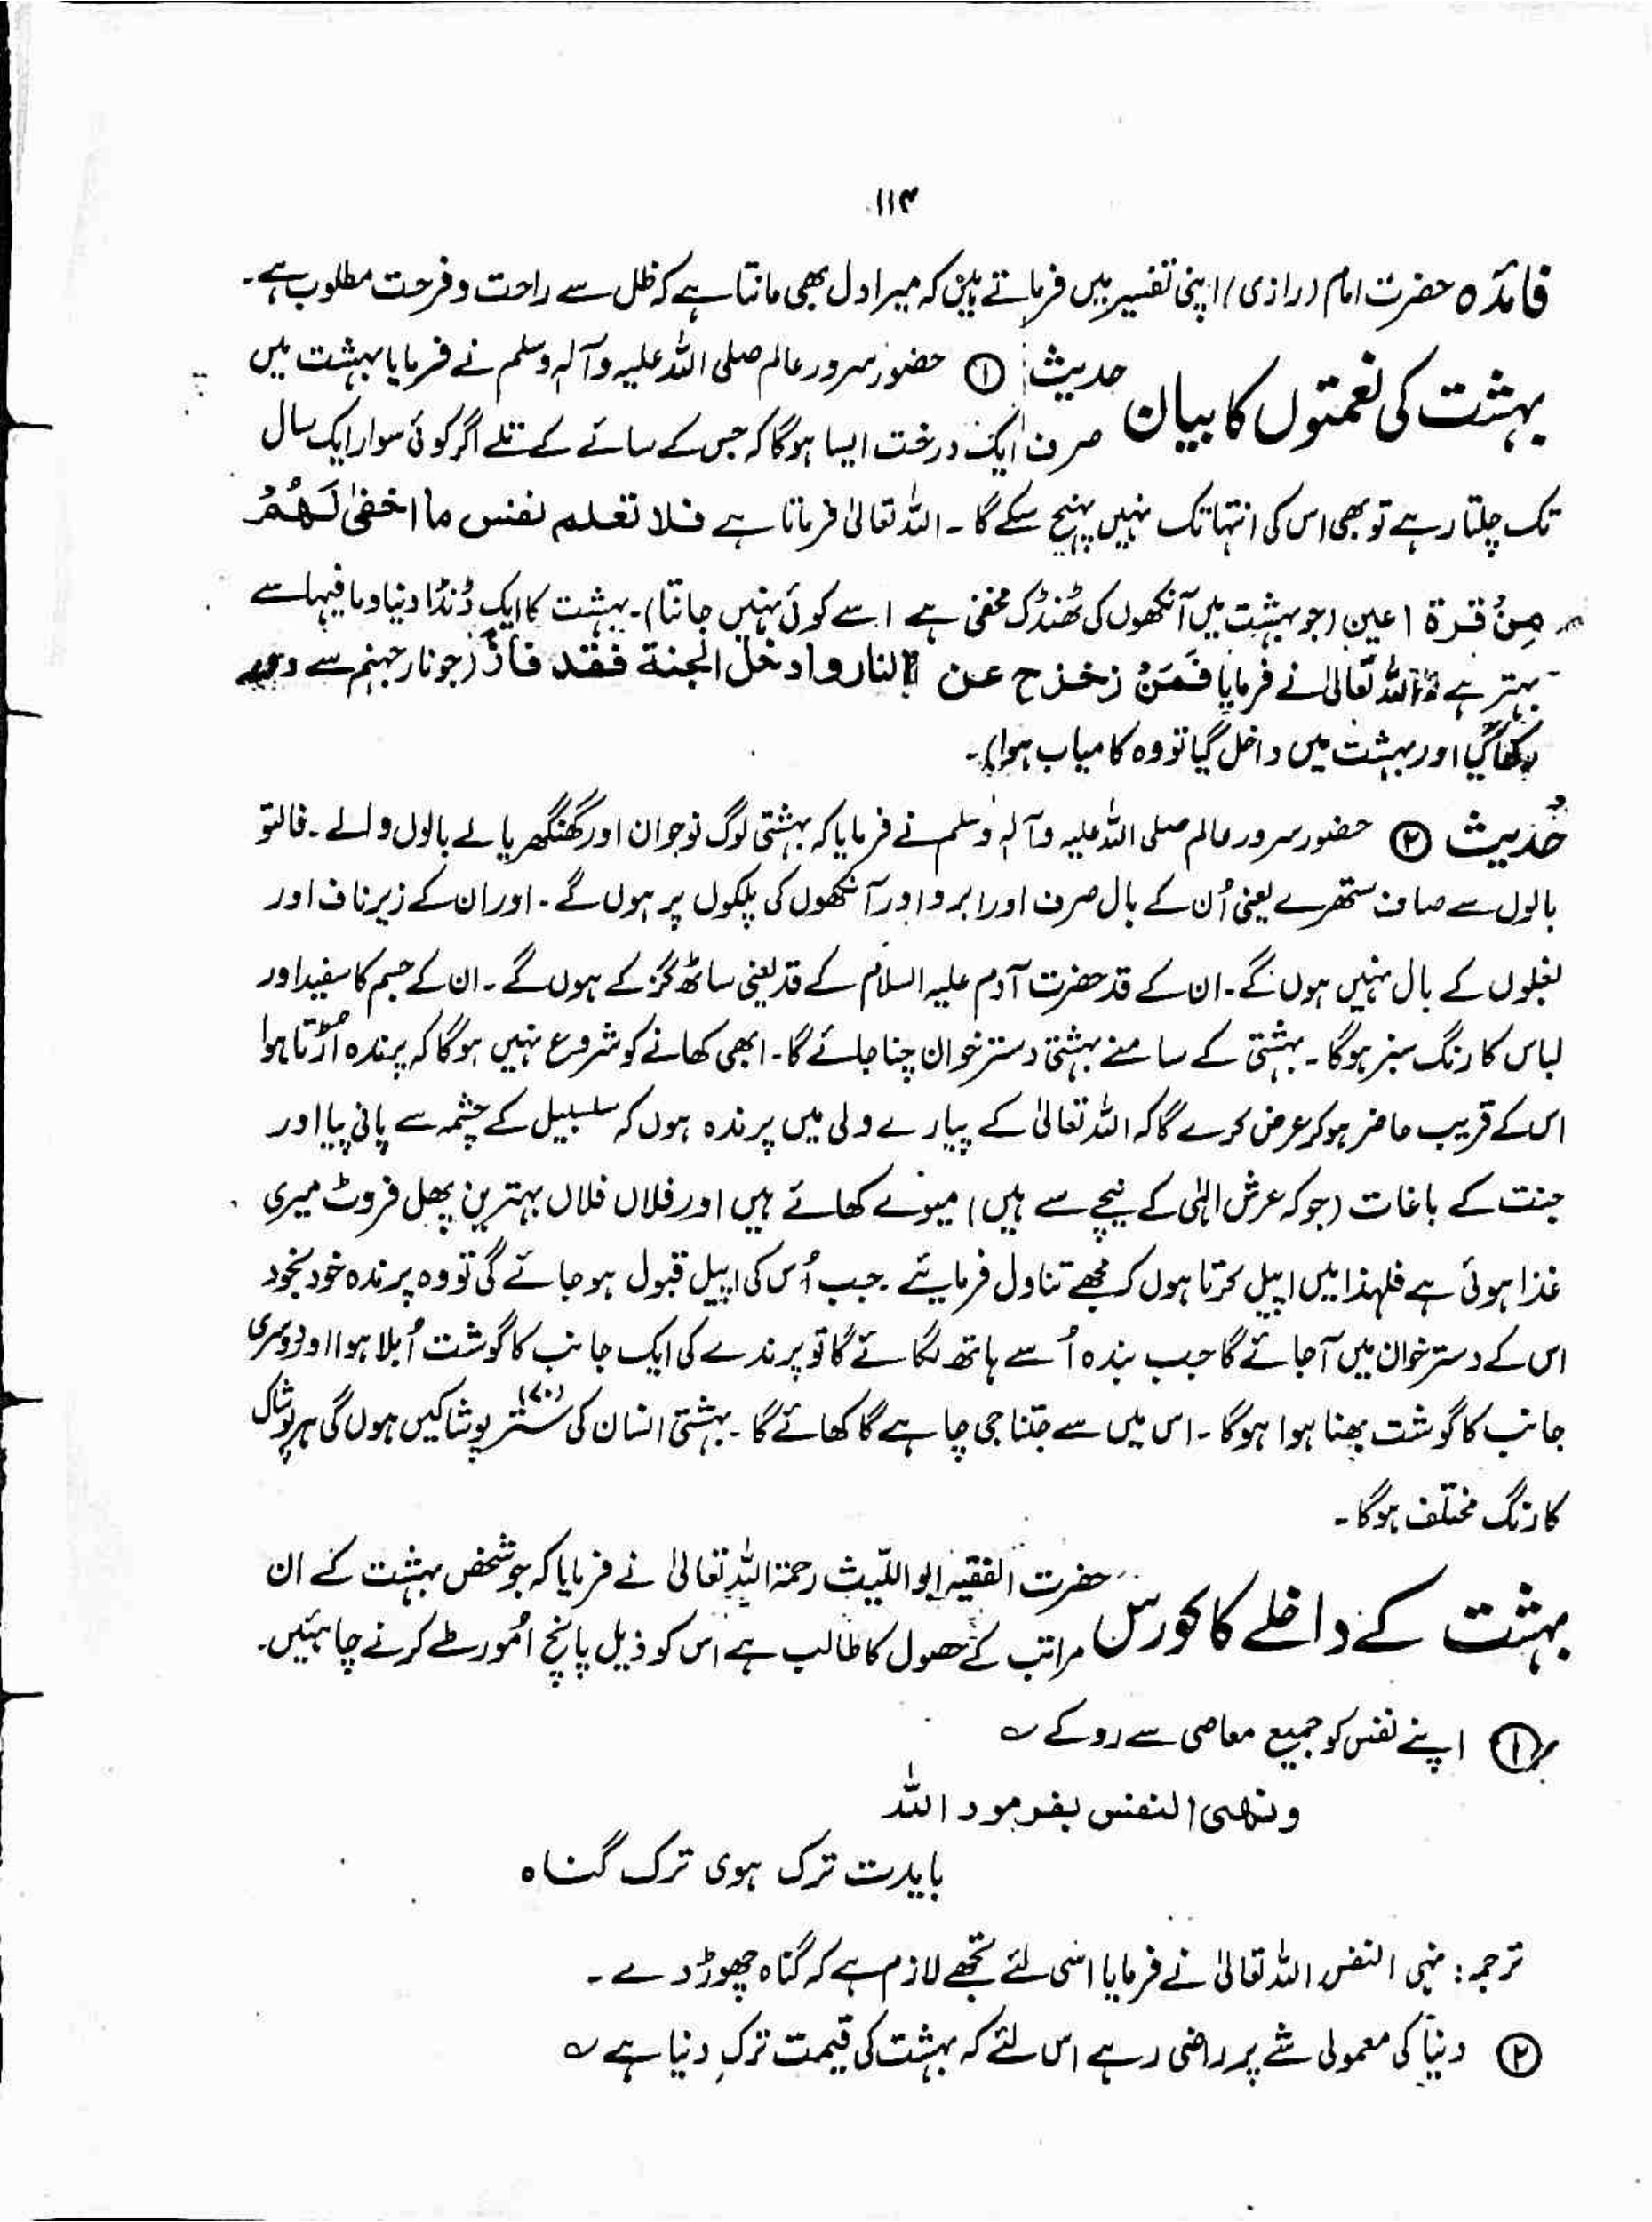 ۱۱۴
فائدہ حضرت امام (رازی) اپنی تفسیر میں فرماتے ہیں کہ میرا دل بھی مانتا ہے کہ ظل سے راحت و فرحت مطلوب ہے۔
بہشت کی نعمتوں کا بیان حدیث ① حضور سرور عالم صلی اللہ علیہ وآلہٖ وسلم نے فرمایا بہشت میں
صرف ایک درخت ایسا ہوگا کہ جس کے سائے کے تلے اگر کوئی سوار ایک سال
تک چلتا رہے تو بھی اس کی انتہا تک نہیں پہنچ سکے گا۔ اللہ تعالیٰ فرماتا ہے فلا تعلم نفس ما اخفیٰ لَھُمْ
مِنْ قرۃ اعین (جو بہشت میں آنکھوں کی ٹھنڈک مخفی ہے اسے کوئی نہیں جانتا)۔ بہشت کا ایک ڈنڈا دنیا و ما فیہا سے
بہتر ہے اللہ تعالیٰ نے فرمایا فَمَنْ زحزح عن النار وادخل الجنۃ فقد فاز (جو نار جہنم سے دور
رکھا گیا اور بہشت میں داخل گیا تو وہ کامیاب ہوا)۔
حدیث ② حضور سرور عالم صلی اللہ علیہ وآلہٖ وسلم نے فرمایا کہ بہشتی لوگ نوجوان اور گھنگھریالے بالوں والے۔ فالتو
بالوں سے صاف ستھرے یعنی اُن کے بال صرف اور ابرو اور آنکھوں کی پلکوں پر ہوں گے۔ اور ان کے زیرناف اور
بغلوں کے بال نہیں ہوں گے۔ ان کے قد حضرت آدم علیہ السلام کے قد یعنی ساٹھ گز کے ہوں گے۔ ان کے جسم کا سفید اور
لباس کا رنگ سبز ہوگا۔ بہشتی کے سامنے بہشتی دستر خوان چنا جائے گا۔ ابھی کھانے کو شروع نہیں ہوگا کہ پرندہ اڑتا ہوا
اس کے قریب حاضر ہو کر عرض کرے گا کہ اللہ تعالیٰ کے پیارے ولی میں پرندہ ہوں کہ سلسبیل کے چشمہ سے پانی پیا اور
جنت کے باغات (جو کہ عرش الٰہی کے نیچے سے ہیں) میوے کھائے ہیں اور فلاں فلاں بہترین پھل فروٹ میری
غذا ہوئی ہے فلہذا میں اپیل کرتا ہوں کہ مجھے تناول فرمایئے جب اُس کی اپیل قبول ہو جائے گی تو وہ پرندہ خود بخود
اس کے دستر خوان میں آجائے گا جب بندہ اُسے ہاتھ لگائے گا تو پرندے کی ایک جانب کا گوشت اُبلا ہوا اور دوسری
جانب کا گوشت بھنا ہوا ہوگا۔ اس میں سے جتنا جی چاہے گا کھائے گا۔ بہشتی انسان کی ستر (۷۰) پوشاکیں ہوں گی ہر پوشاک
کا رنگ مختلف ہوگا۔
بہشت کے داخلے کا کورس حضرت الفقیہ ابو اللّیث رحمۃ اللہ تعالیٰ نے فرمایا کہ جو شخص بہشت کے ان
مراتب کے حصول کا طالب ہے اس کو ذیل پانچ اُمور طے کرنے چاہئیں۔
① اپنے نفس کو جمیع معاصی سے روکے ؎
ونھی النفس بفرمود اللہ
بایدت ترک ہوی ترک گناہ
ترجمہ: نہی النفس اللہ تعالیٰ نے فرمایا اسی لئے تجھے لازم ہے کہ گناہ چھوڑ دے۔
② دنیا کی معمولی شے پر راضی رہے اس لئے کہ بہشت کی قیمت ترکِ دنیا ہے ؎